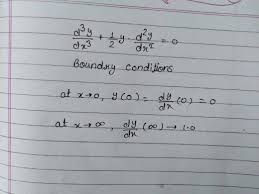 d³y/dx³ + 1/2 y · d²y/dx² = 0
Boundry conditions
at x→0, y(0) = dy/dx (0) = 0
at x→∞, dy/dx (∞) → 1.0